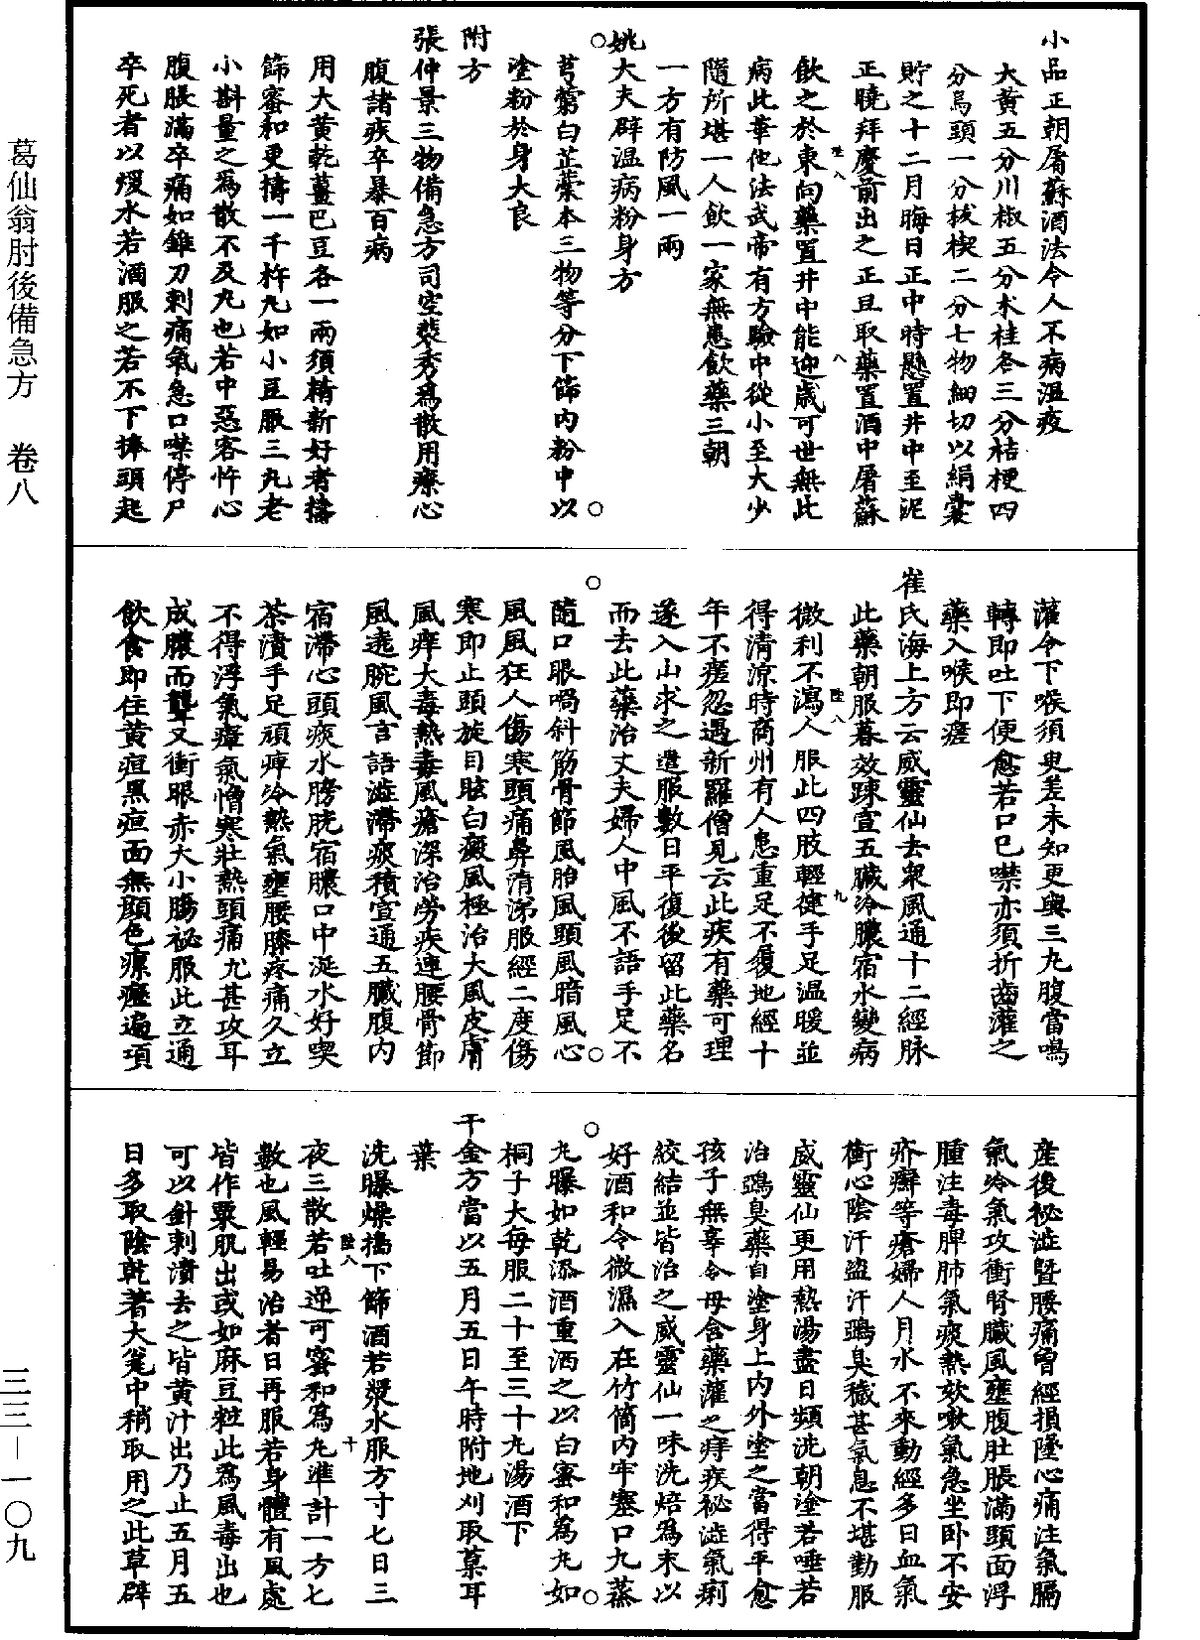 葛仙翁肘後備急方　卷八
小品正朝屠蘇酒法令人不病溫疫
大黃五分川椒五分朮桂各三分桔梗四
分烏頭一分菝楔二分七物細切以絹囊
貯之十二月晦日正中時懸置井中至泥
正曉拜慶前出之正旦取藥置酒中屠蘇
飲之於東向藥置井中能迎歲可世無此
病此華佗法武帝有方驗中從小至大少
隨所堪一人飲一家無患飲藥三朝
一方有防風一兩
姚大夫辟溫病粉身方
芎藭白芷藁本三物等分下篩內粉中以
塗粉於身大良
附方
張仲景三物備急方司空裴秀為散用療心
腹諸疾卒暴百病
用大黃乾薑巴豆各一兩須精新好者擣
篩蜜和更擣一千杵丸如小豆服三丸老
小斟量之為散不及丸也若中惡客忤心
腹脹滿卒痛如錐刀刺痛氣急口噤停尸
卒死者以煖水若酒服之若不下捧頭起
灌令下喉須臾差未知更與三丸腹當鳴
轉即吐下便愈若口已噤亦須折齒灌之
藥入喉即瘥
崔氏海上方云威靈仙去衆風通十二經脉
此藥朝服暮效疎宣五臟冷膿宿水變病
微利不瀉人服此四肢輕健手足溫暖並
得清涼時商州有人患重足不履地經十
年不瘥忽遇新羅僧見云此疾有藥可理
遂入山求之遣服數日平復後留此藥名
而去此藥治丈夫婦人中風不語手足不
隨口眼喎斜筋骨節風胎風頭風暗風心
風風狂人傷寒頭痛鼻清涕服經二度傷
寒即止頭旋目眩白癜風極治大風皮膚
風痒大毒熱毒風瘡深治勞疾連腰骨節
風遶腕風言語澁滯痰積宣通五臟腹內
宿滯心頭痰水膀胱宿膿口中涎水好喫
茶漬手足頑痺冷熱氣壅腰膝疼痛久立
不得浮氣瘴氣憎寒壯熱頭痛尤甚攻耳
成膿而聾又衝眼赤大小腸祕服此立通
飲食即住黃疸黑疸面無顏色瘰癧遍項
產後祕澁暨腰痛曾經損墜心痛注氣膈
氣冷氣攻衝腎臟風壅腹肚脹滿頭面浮
腫注毒脾肺氣痰熱欬嗽氣急坐卧不安
疥癬等瘡婦人月水不來動經多日血氣
衝心陰汗盜汗鵶臭穢甚氣息不堪勤服
威靈仙更用熱湯盡日頻洗朝塗若唾若
治鵶臭藥自塗身上內外塗之當得平愈
孩子無辜令母含藥灌之痔疾祕澁氣痢
絞結並皆治之威靈仙一味洗焙為末以
好酒和令微濕入在竹筒內牢塞口九蒸
九曝如乾添酒重洒之以白蜜和為丸如
桐子大每服二十至三十丸湯酒下
千金方當以五月五日午時附地刈取葈耳
葉
洗曝燥擣下篩酒若漿水服方寸七日三
夜三散若吐逆可蜜和為丸準計一方七
數也風輕易治者日再服若身體有風處
皆作粟肌出或如麻豆粒此為風毒出也
可以針刺潰去之皆黃汁出乃止五月五
日多取陰乾著大瓮中稍取用之此草辟
陸八
八
陸八
九
陸八
十
三三－一〇九